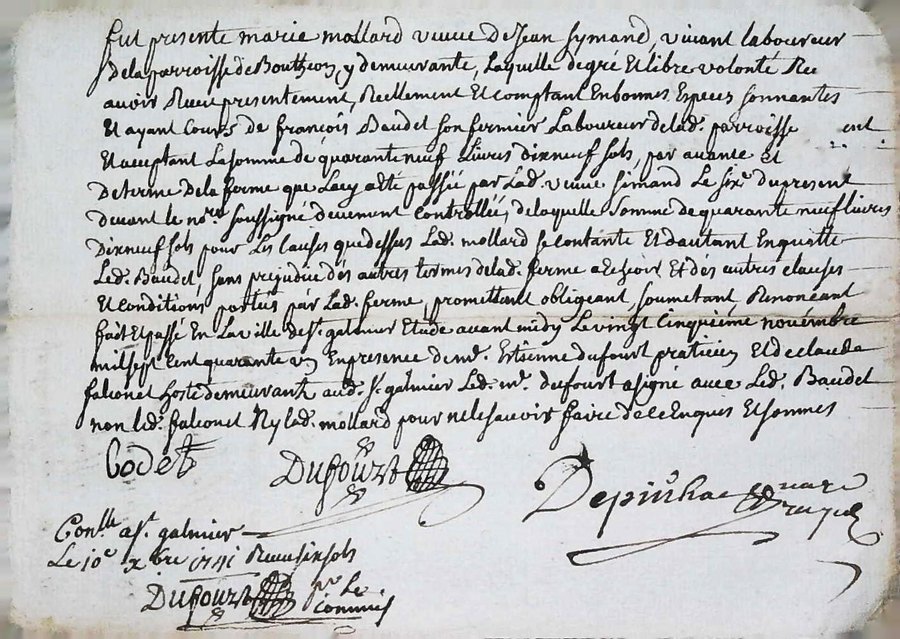 fut presente marie mollard veuve De Jean Symand, vivant laboureur
de la parroisse de Bouthéon, y demeurante, Laquelle de gré Et libre volonté
avoir Receu presentement, Reellement Et comptant En bonnes Especes sonnantes
Et ayant Cours de françois Baudet son fermier Laboureur de lad. parroisse ent
Et acceptant La somme de quarante neuf Livres dix neuf sols, par avance Et
de terme De la ferme que Lacy a été passée par Lad. veuve Simand Le six.e du present
devant le no.re soussigné deuement Controllée, de laquelle somme de quarante neuf livres
Dix neuf sols pour Les Causes que dessus Lad. mollard se contante Et d'autant En quitte
Led. Baudet, sans prejudice des autres termes de lad. ferme a Echeoir Et des autres clauses
Et conditions portées par Lad. ferme, promettant obligeant, soumetant, Renonceant
fait Et passé En La ville de St. galmier Etude avant midy Le vingt Cinquieme novembre
mil sept Cent quarante un En presence de m.e Estienne dufourt praticien Et de claude
falconet hoste demeurants aud. St. galmier Led. m.e dufourt a signé avec Led. Baudet
non led. falconet Ny lad. mollard pour ne le sçavoir faire de ce Enquis Et sommés
Bodet Dufourt
Con.lle a St. galmier
Le 10e xbre 1741 Receu six sols
Dufourt p.r Le
Commis